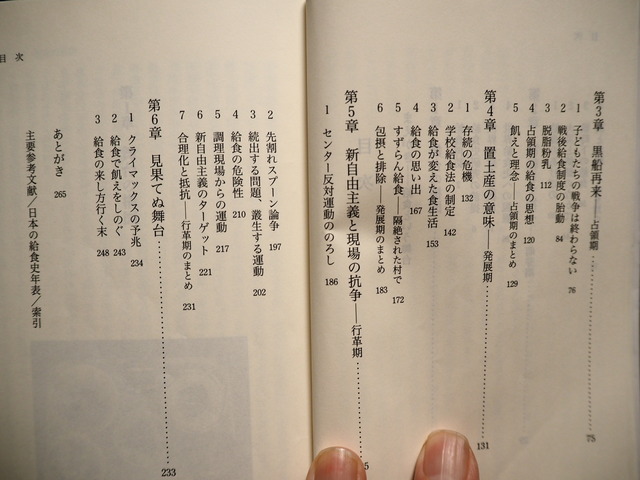 第3章 黒船再来――占領期……75
1 子どもたちの戦争は終わらない 76
2 戦後給食制度の胎動 84
3 脱脂粉乳 112
4 占領期の給食の思想 120
5 飢えと理念――占領期のまとめ 129
第4章 置土産の意味――発展期……131
1 存続の危機 132
2 学校給食法の制定 142
3 給食が変えた食生活 153
4 給食の思い出 167
5 すずらん給食――隔絶された村で 172
6 包摂と排除――発展期のまとめ 183
第5章 新自由主義と現場の抗争――行革期……5
1 センター反対運動ののろし 186
目次
2 先割れスプーン論争 197
3 続出する問題、叢生する運動 202
4 給食の危険性 210
5 調理現場からの運動 217
6 新自由主義のターゲット 221
7 合理化と抵抗――行革期のまとめ 231
第6章 見果てぬ舞台……233
1 クライマックスの予兆 234
2 給食で飢えをしのぐ 243
3 給食の来し方行く末 248
あとがき 265
主要参考文献/日本の給食史年表/索引